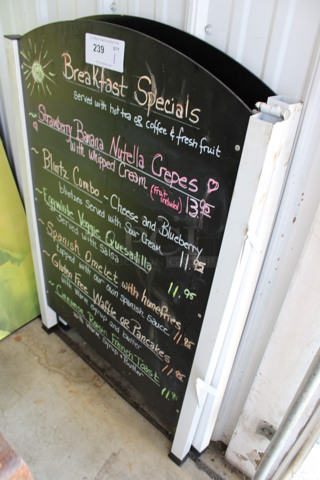 239
Breakfast Specials
served with hot tea or coffee & fresh fruit
~ Strawberry Banana Nutella Crepes
with Whipped Cream (Fruit included) 13.95
~ Blintz Combo - Cheese and Blueberry
blintzes served with Sour Cream 11.95
~ Veggie Quesadilla
served with salsa 11.95
~ Spanish Omelet with homefries
topped with our own Spanish sauce 11.95
~ Gluten Free Waffle or Pancakes
with syrup and butter 11.95
~ French Toast
with syrup + butter